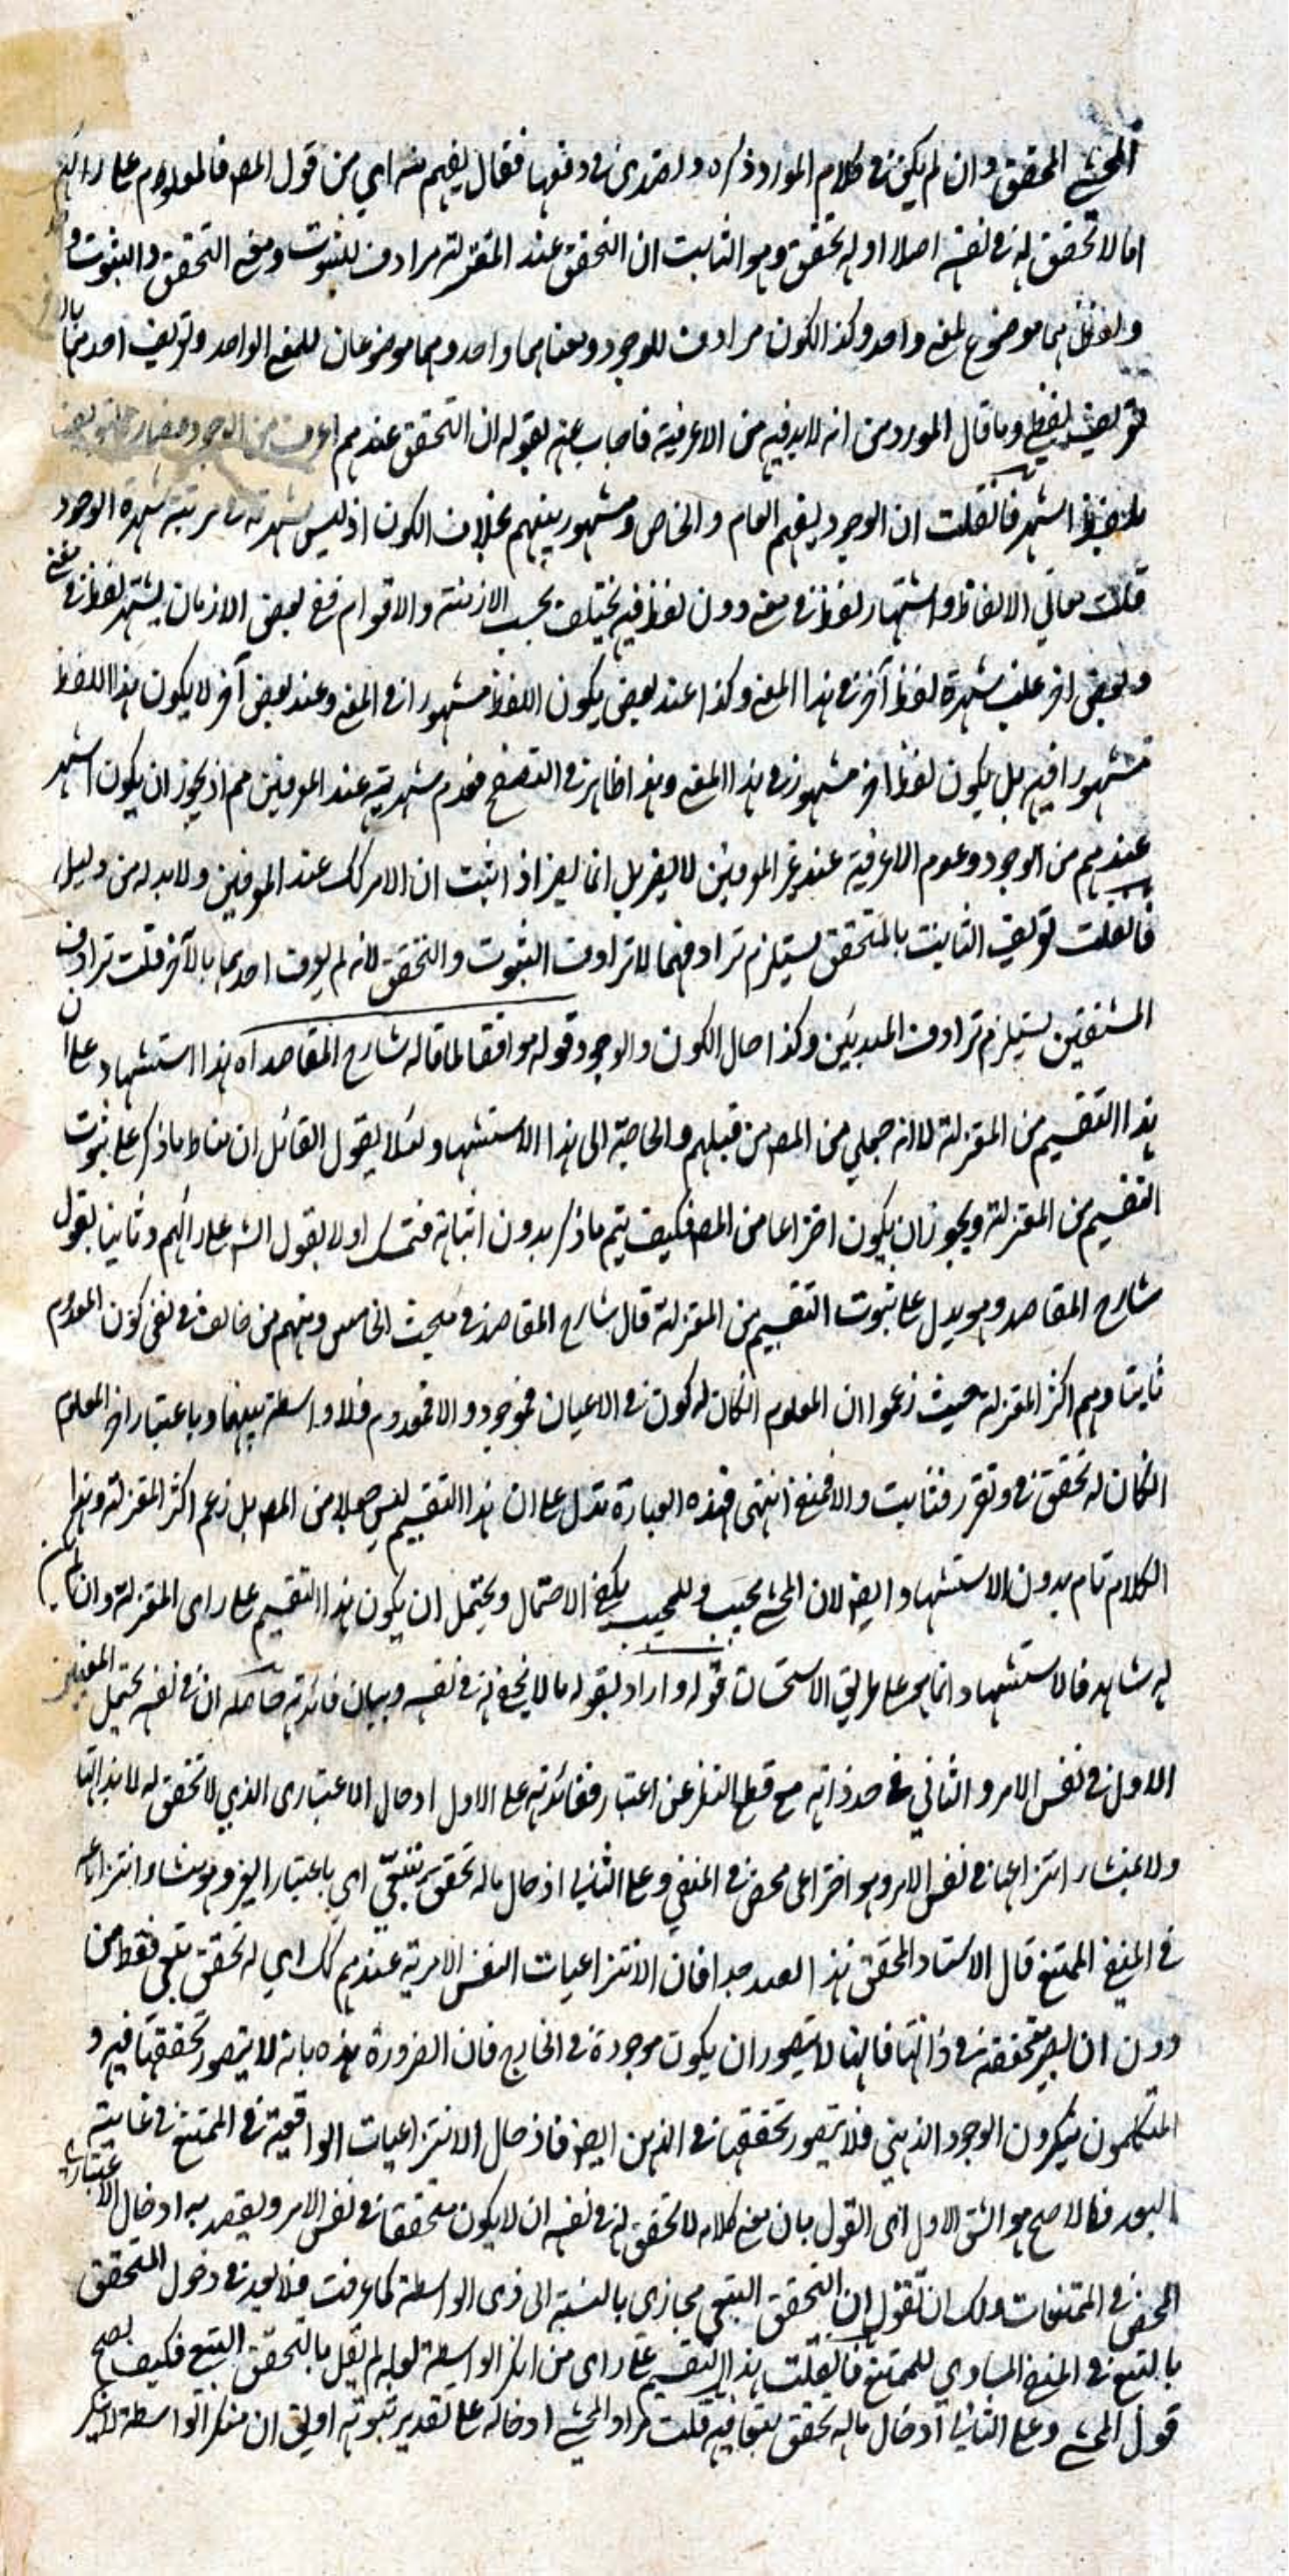 المحشي المحقق وان لم يكن في كلام المورد ذكره ولتصدى في دفعها فقال يفهم منه اي من قول المصـ فالمعلوم على رائهم
اما لا تحقق له في نفسه اصلا او له تحقق وهو الثابت ان التحقق عند المعتزلة مرادف للثبوت ومعنى التحقق والثبوت واحد
ولفظهما موضوع لمعنى واحد وكذا الكون مرادف للوجود ومعناهما واحد وهما موضوعان للمعنى الواحد وتعريف احدهما بالآخر
تعريف لفظي وما قال المورد من انه لابد فيه من الاعرفية فاجاب عنه بقوله ان التحقق عندهم اعرف من الوجود فصار حاله تعريف
بلفظ اشهر فانقلت ان الوجود يفهم العام والخاص ومشهور بينهم بخلاف الكون اذ ليس شهرته في مرتبة شهرة الوجود
قلت معاني الالفاظ واشتهار لفظ في معنى دون لفظ فيه يختلف بحسب الازمنة والاقوام ففي بعض الازمان يشتهر لفظ في معنى
وفي بعض اخر غلب شهرة لفظ آخر في هذا المعنى وكذا عند بعض يكون اللفظ مشهورا في المعنى وعند بعض آخر لا يكون هذا اللفظ
مشهورا فيه بل يكون لفظ اخر مشهور في هذا المعنى وهذا ظاهر في التصفح فعدم شهرتة عند المعرفين مم اذ يجوز ان يكون اشهر
عندهم من الوجود وعدم الاعرفية عند غير المعرفين لا يضر بل انما يضر اذا ثبت ان الامر كك عند المعرفين ولابد له من دليل
فانقلت تعريف الثابت بالمتحقق يستلزم ترادفهما لا ترادف الثبوت والتحقق لانه لم يعرف احدهما بالآخر قلت ترادف
المشتقين يستلزم ترادف المبدئين وكذا حال الكون والوجود قوله موافقا لما قاله شارح المقاصد آه هذا استشهاد على ان
هذا التقسيم من المعتزلة لا انه جعلي من المصـ من قبلهم والحاجة الى هذا الاستشهاد لئلا يقول القائل ان مناط ما ذكر على ثبوت
التقسيم من المعتزلة ويجوز ان يكون اختراعا من المصـ فكيف يتم ما ذكر بدون اثباتة فتمسك اولا بقول الشـ على رائهم وثانيا بقول
شارح المقاصد وهو يدل على ثبوت التقسيم من المعتزلة قال شارح المقاصد في مبحث الخامس ومنهم من خالف في نفى كون المعدوم
ثابتا وهم اكثر المعتزلة حيث زعموا ان المعلوم انكان له كون في الاعيان فموجود والا فمعدوم فلا واسطة بينهما وباعتبار اخر المعلوم
انكان له تحقق في وتقرر فثابت والا فمنفى انتهى فهذه العبارة تدل على ان هذا التقسيم ليس جعلا من المصـ بل زعم اكثر المعتزلة وهذا
الكلام تام بدون الاستشهاد ايضـ لان المحشي مجيب وللمجيب يكفي الاحتمال ويحتمل ان يكون هذا التقسيم على راى المعتزلة وان لم يكن
له شاهد فالاستشهاد انما هو على طريق الاستحسان قوله واراد بقوله ما لا تحقق له في نفسه وبيان فائدته حاصله ان في نفسه يحتمل المعنيين
الاول في نفس الامر والثاني في حد ذاته مع قطع النظر عن اعتبار ففائدته على الاول ادخال الاعتبارى الذي لا تحقق له لا بذاتها
ولا بمنشاء انتزاعها في نفس الامر وهو اختراعى محض في المنفي وعلى الثاني ادخال ماله تحقق تبعي اي باعتبار الغير وهو منشاء انتزاعه
في المنفي الممتنع قال الاستاد المحقق هذا العبد جدا فان الانتزاعيات النفس الامرية عندهم كك اي له تحقق تبعي فقط من
دون ان يصير متحققة في ذاتها فانها لا يتصور ان يكون موجودة في الخارج فان الضرورة شاهدة بانه لا يتصور تحققها فيه و
المتكلمون ينكرون الوجود الذهني فلا يتصور تحققها في الذهن ايضـ فادخال الانتزاعيات الواقعية في الممتنع في غاية
البعد فالاصح هو الشق الاول اى القول بان معنى كلامه لا تحقق له في نفسه ان لا يكون متحققا في نفس الامر ويقصد به ادخال الاعتباريات
المحض في الممتنعات ولك ان تقول ان التحقق التبعي مجازي بالنسبة الى ذى الواسطة كما عرفت فلا بعد في دخول المتحقق
بالتبع في المنفي المساوي للممتنع فانقلت هذا التقسيم على راى من انكر الواسطة لعله لم يقل بالتحقق التبع فكيف يصح
قول المحشي وعلى الثاني ادخال ماله تحقق تبعا فيه قلت مراد المحشي ادخاله على تقدير ثبوته اولى ان منكر الواسطة لا ينكر